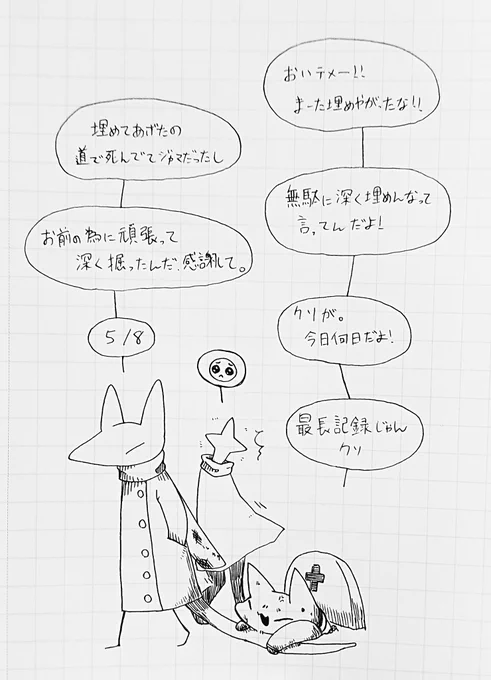 おいテメー!!
まーた埋めやがったな!!
無駄に深く埋めんなって
言ってんだよ!
クソが。
今日何日だよ!
最長記録じゃん
クソ
埋めてあげたの
道で死んでてジャマだったし
お前の為に頑張って
深く掘ったんだ、感謝して。
5/8